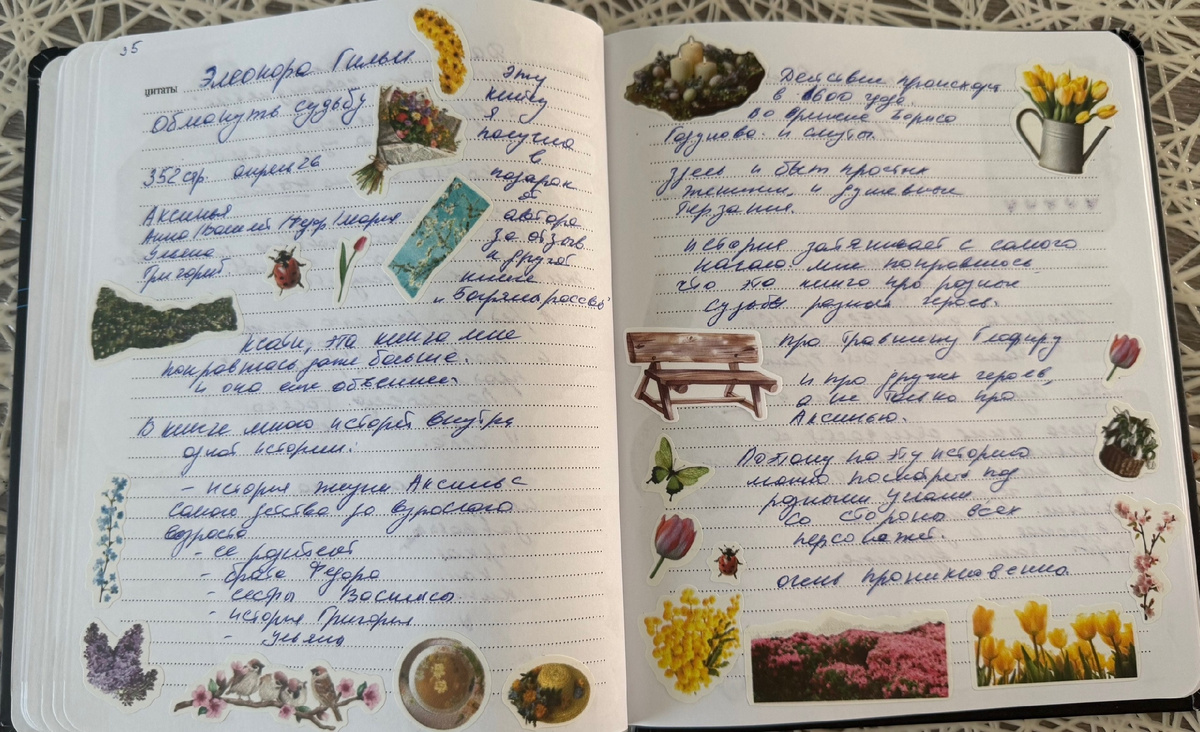 35
Элеонора Гильм
цитаты
обмануть судьбу
352 стр. апрель 26
Аксинья
Анна/Василий/Федор/Мария
Ульяна
Григорий
Эту
книгу
я
получила
в
подарок
от
автора
за отзыв
к другой
книге
и Багряный рассвет
кстати, эта книга мне
понравилась даже больше.
и она еще объемнее.
В книге много историй внутри
одной истории:
- история жизни Аксиньи с
самого детства до взрослого
возраста
- ее родителей
- брата Федора
- сестры Василисы
- история Григория
- Ульяны
Действие происходит
в 1600 года.
Во времена Бориса
Годунова. и смуты.
Здесь и быт простых
женщин, и душевные
терзания.
История затягивает с самого
начала мне понравилось
что эта книга про разные
судьбы разных героев.
Про травницу Глафиру
и про других героев,
а не только про
Аксинью.
Потому на эту историю
можно посмотреть под
разными углами
со стороны всех
персонажей.
очень проникновенно